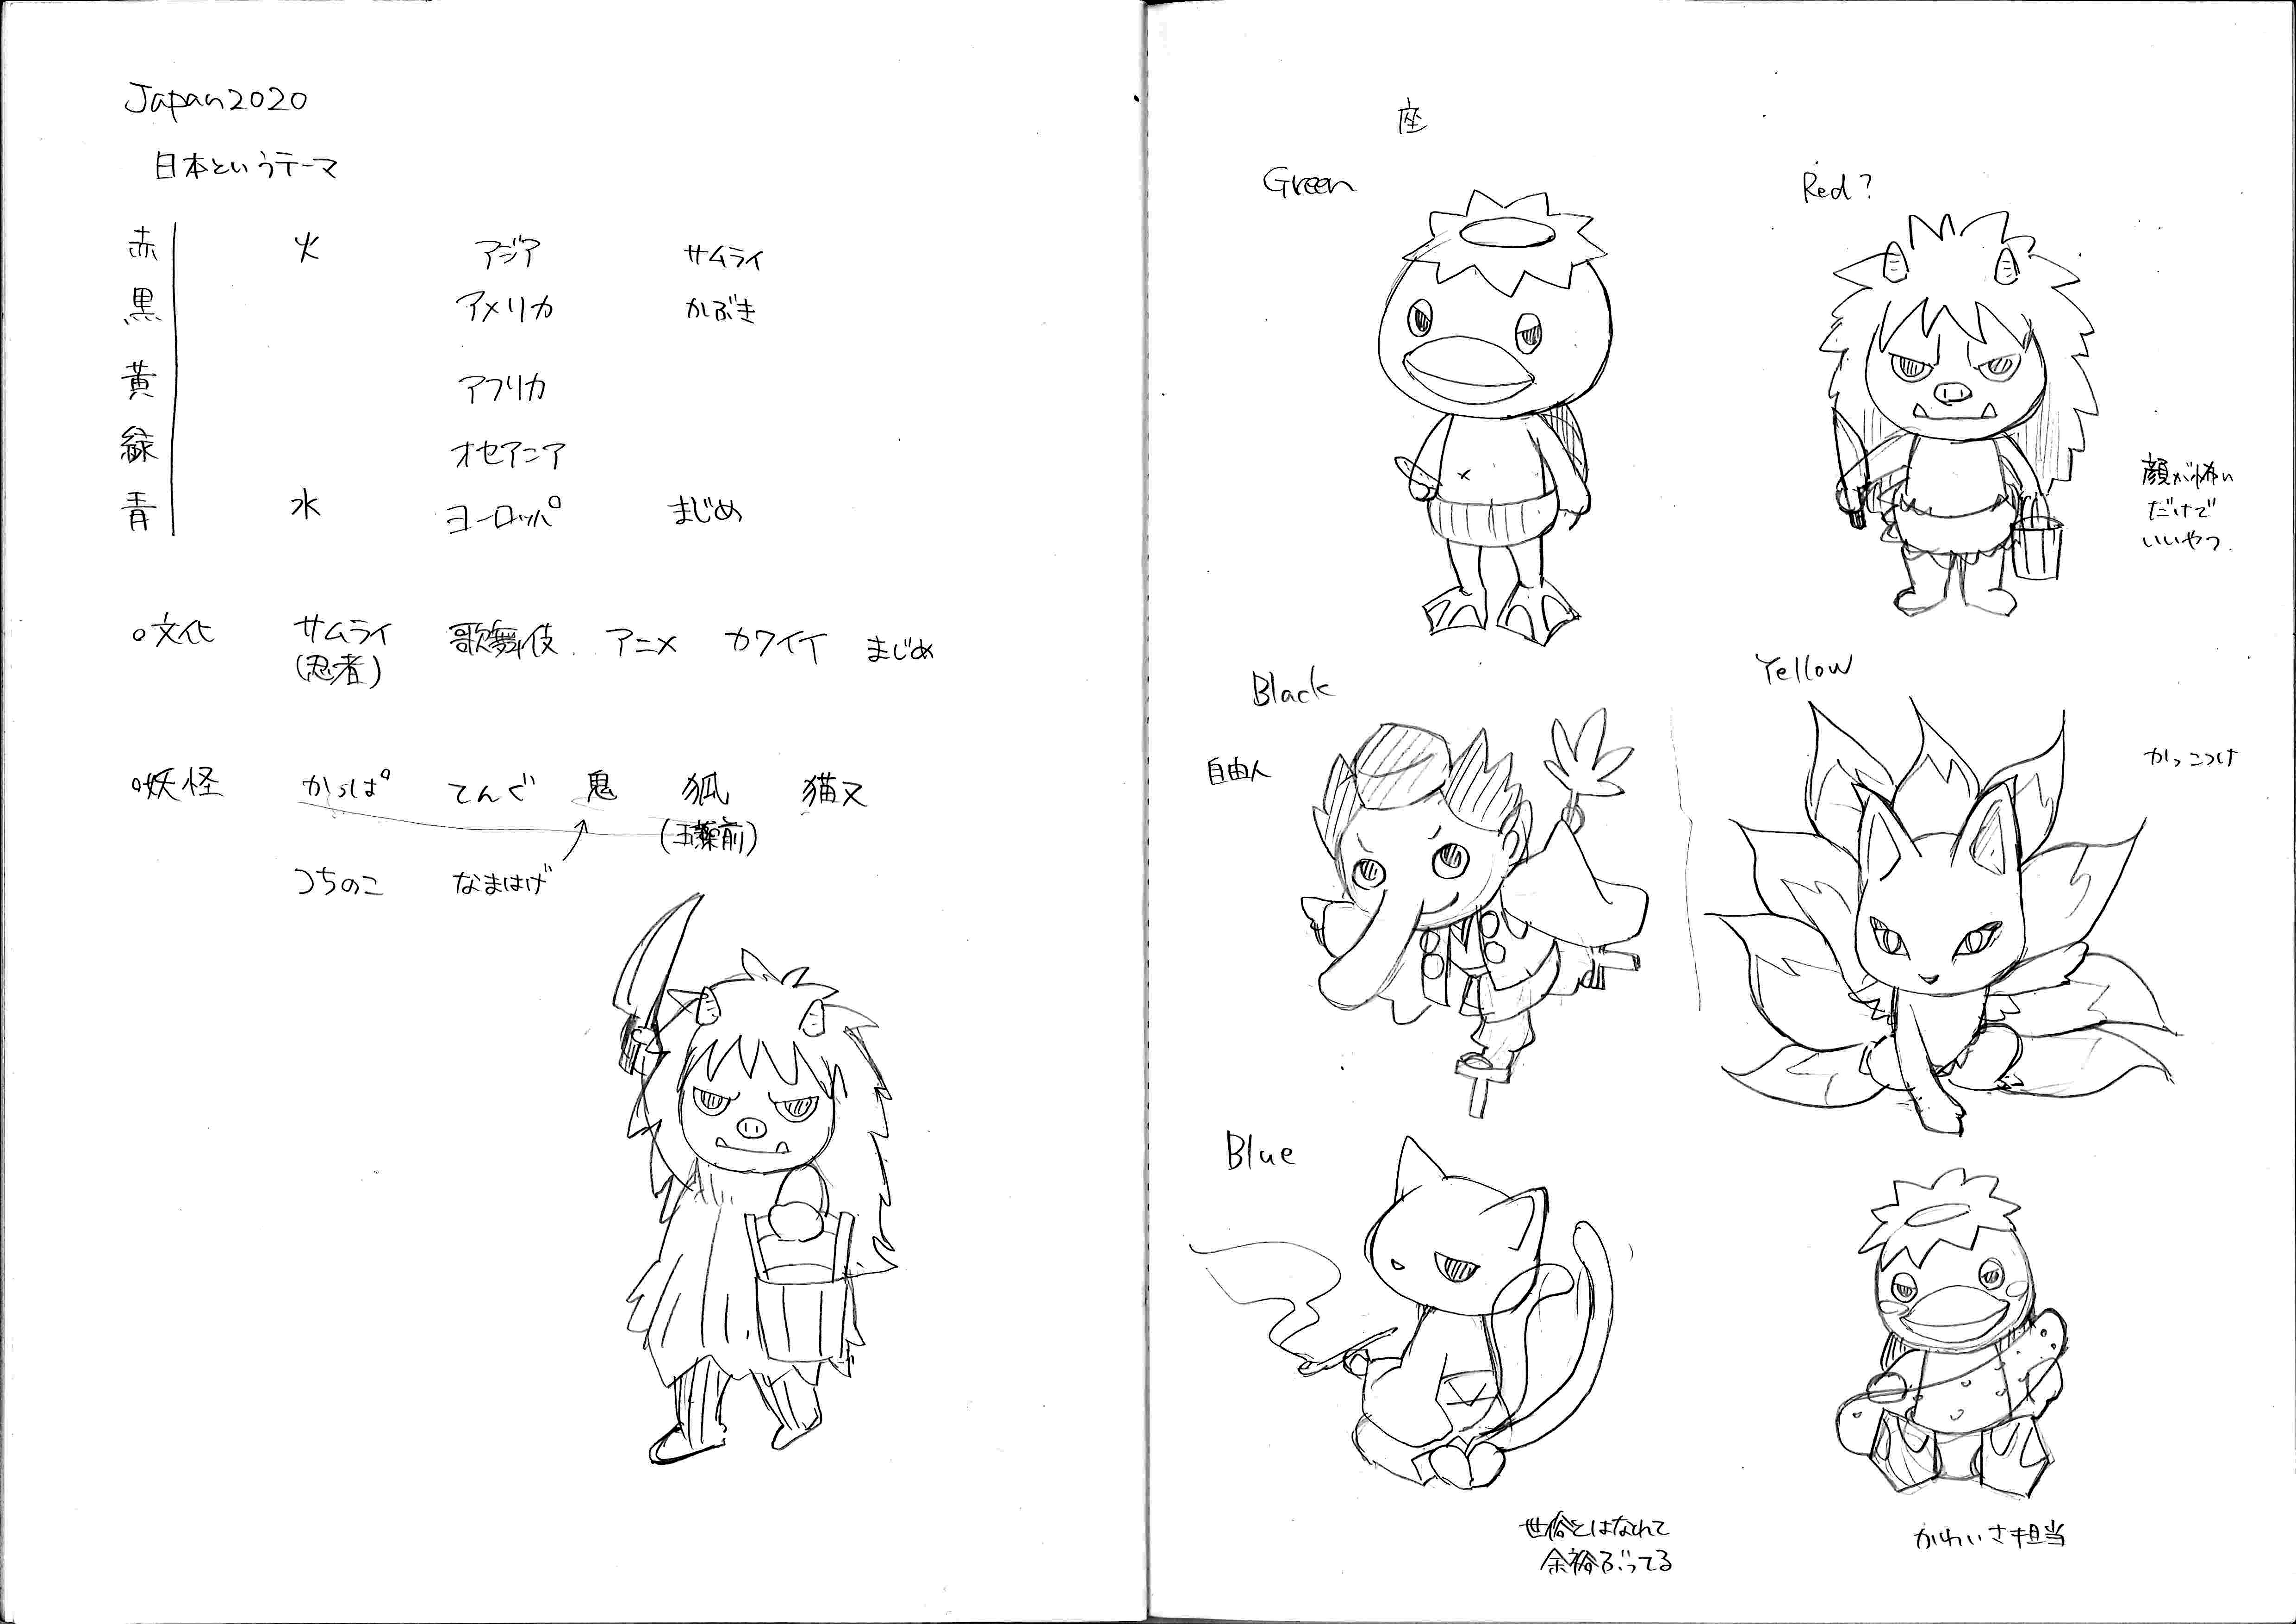 Japan2020
日本というテーマ
赤 火 アジア サムライ
黒 アメリカ かぶき
黄 アフリカ
緑 オセアニア
青 水 ヨーロッパ まじめ
○文化 サムライ 歌舞伎. アニメ カワイイ まじめ
(忍者)
○妖怪 かっぱ てんぐ 鬼 狐 猫又
(玉藻前)
つちのこ なまはげ
座
Green
Red?
顔が怖い
だけで
いいやつ.
Black
自由人
Yellow
かっこつけ
Blue
世俗とはなれて
余裕ぶってる
かわいさ担当